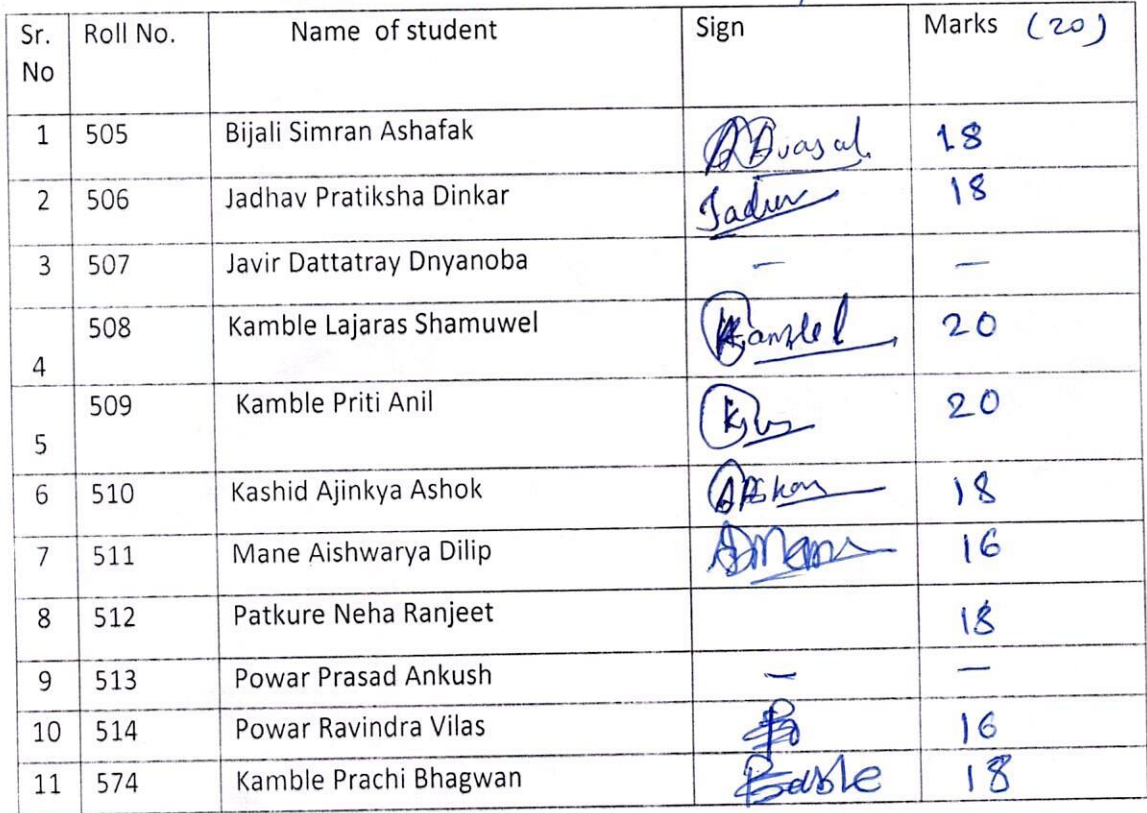 Sr. No Roll No. Name of student Sign Marks (20)
1 505 Bijali Simran Ashafak 18
2 506 Jadhav Pratiksha Dinkar Jadhav 18
3 507 Javir Dattatray Dnyanoba — —
4 508 Kamble Lajaras Shamuwel 20
5 509 Kamble Priti Anil 20
6 510 Kashid Ajinkya Ashok 18
7 511 Mane Aishwarya Dilip 16
8 512 Patkure Neha Ranjeet 18
9 513 Powar Prasad Ankush — —
10 514 Powar Ravindra Vilas 16
11 574 Kamble Prachi Bhagwan 18